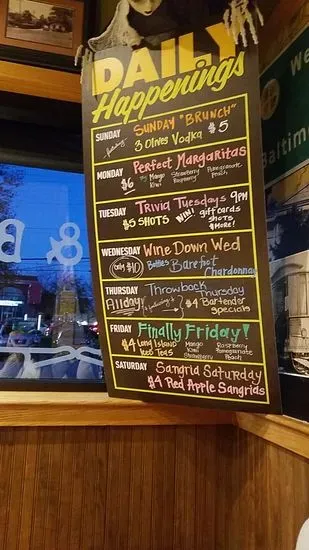 DAILY
Happenings
SUNDAY
SUNDAY "BRUNCH"
featuring
3 Olives Vodka $5
MONDAY
Perfect Margaritas
$6
Mango Strawberry Pomegranate
Kiwi Raspberry Peach
TUESDAY
Trivia Tuesdays 9PM
$5 SHOTS
WIN!
giftcards
SHOTS
& MORE!
WEDNESDAY
Wine Down Wed
only $10
Bottles Barefoot
Chardonnay
THURSDAY
Throwback
Thursday
All day!
featuring
$4 Bartender
specials
FRIDAY
Finally Friday!
$4 Long Island
Iced Teas
Mango
Kiwi
Strawberry
Raspberry
Pomegranate
Peach
SATURDAY
Sangria Saturday
$4 Red Apple Sangrias
We
Baltim
& B